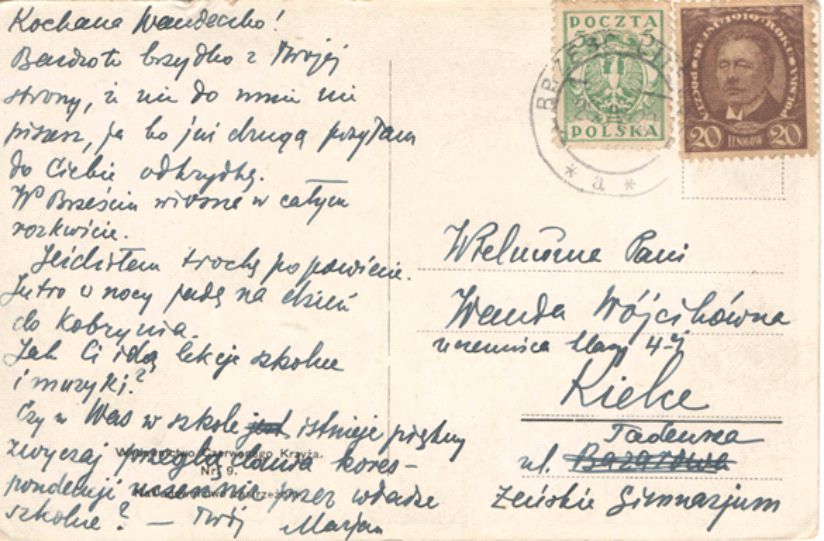 Kochana Wandeczko!
Bardzo to brzydko z Twojej
strony, że nie do mnie nie
piszesz, ja bo już drugą posyłam
do Ciebie odkrytkę.
W Brześciu wiosna w całym
rozkwicie.
Jeździłem trochę po powiecie.
Jutro w nocy jadę na dzień
do Kobrynia.
Jak Ci idą lekcje szkolne
i muzyki?
Czy u Was w szkole jest istnieje piękny
zwyczaj przeglądania kores-
pondencji uczennic przez władze
szkolne? — Twój Marjan
Wydawnictwo Czerwonego Krzyża.
Nr. 9.
POCZTA
5 5
POLSKA
POCZTA SEJM 1919 ROKU POLSKA
20 FENIGÓW 20
BRZEŚĆ
* a *
Wielmożna Pani
Wanda Wójcikówna
uczennica klasy 4-j
Kielce
Tadeusza
ul. Bazarowa
Żeńskie Gimnazjum